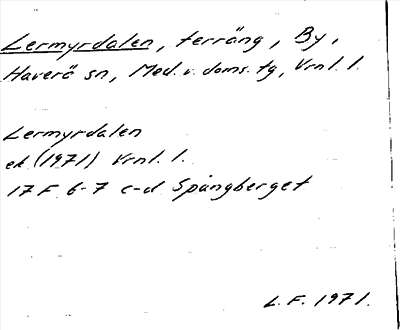 Lermyrdalen, terräng, By,
Haverö sn, Med. v. doms. tg, Vrnl. l.
Lermyrdalen
ek (1971) Vrnl. l.
17 F 6-7 c-d Spångberget
L. F. 1971.